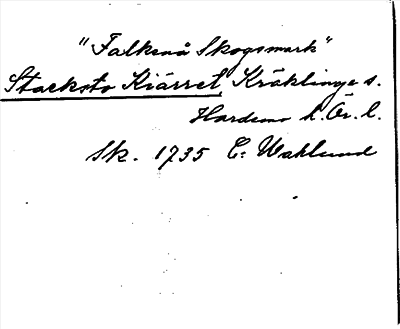 "Falkenå Skogsmark"
Stacksto Kiärret, Kräklinge s.
Hardemo h. Ör. l.
Sk. 1735 C. Wahlund